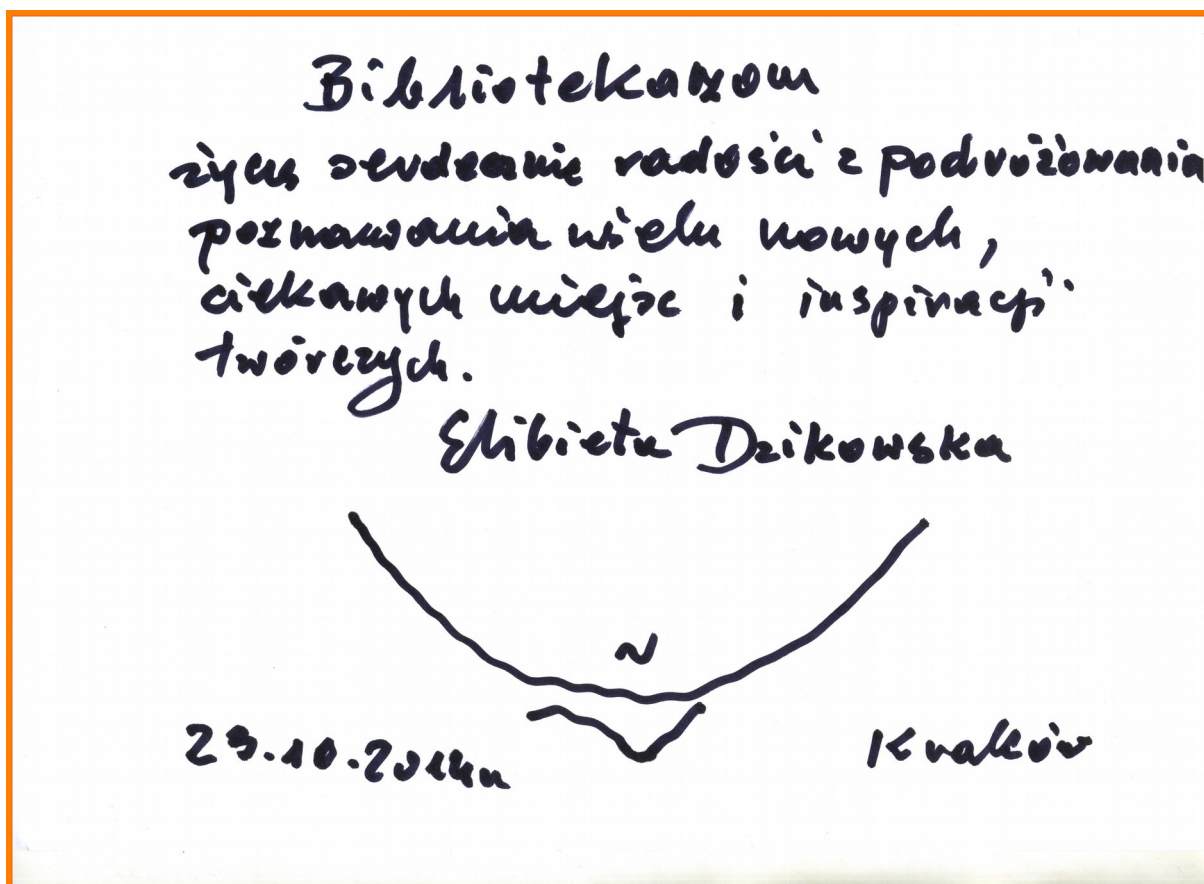 Bibliotekarzom
życzę serdecznie radości z podróżowania
poznawania wielu nowych,
ciekawych miejsc i inspiracji
twórczych.
Elżbieta Dzikowska
23.10.2014r
Kraków